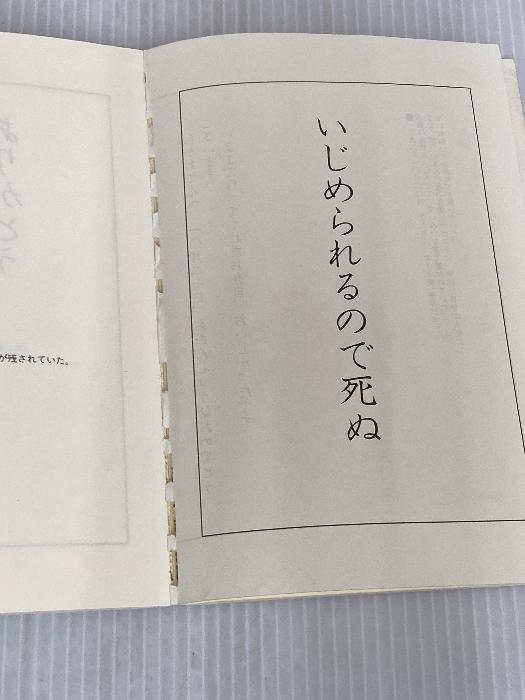 いじめられるので死ぬ
が残されていた。